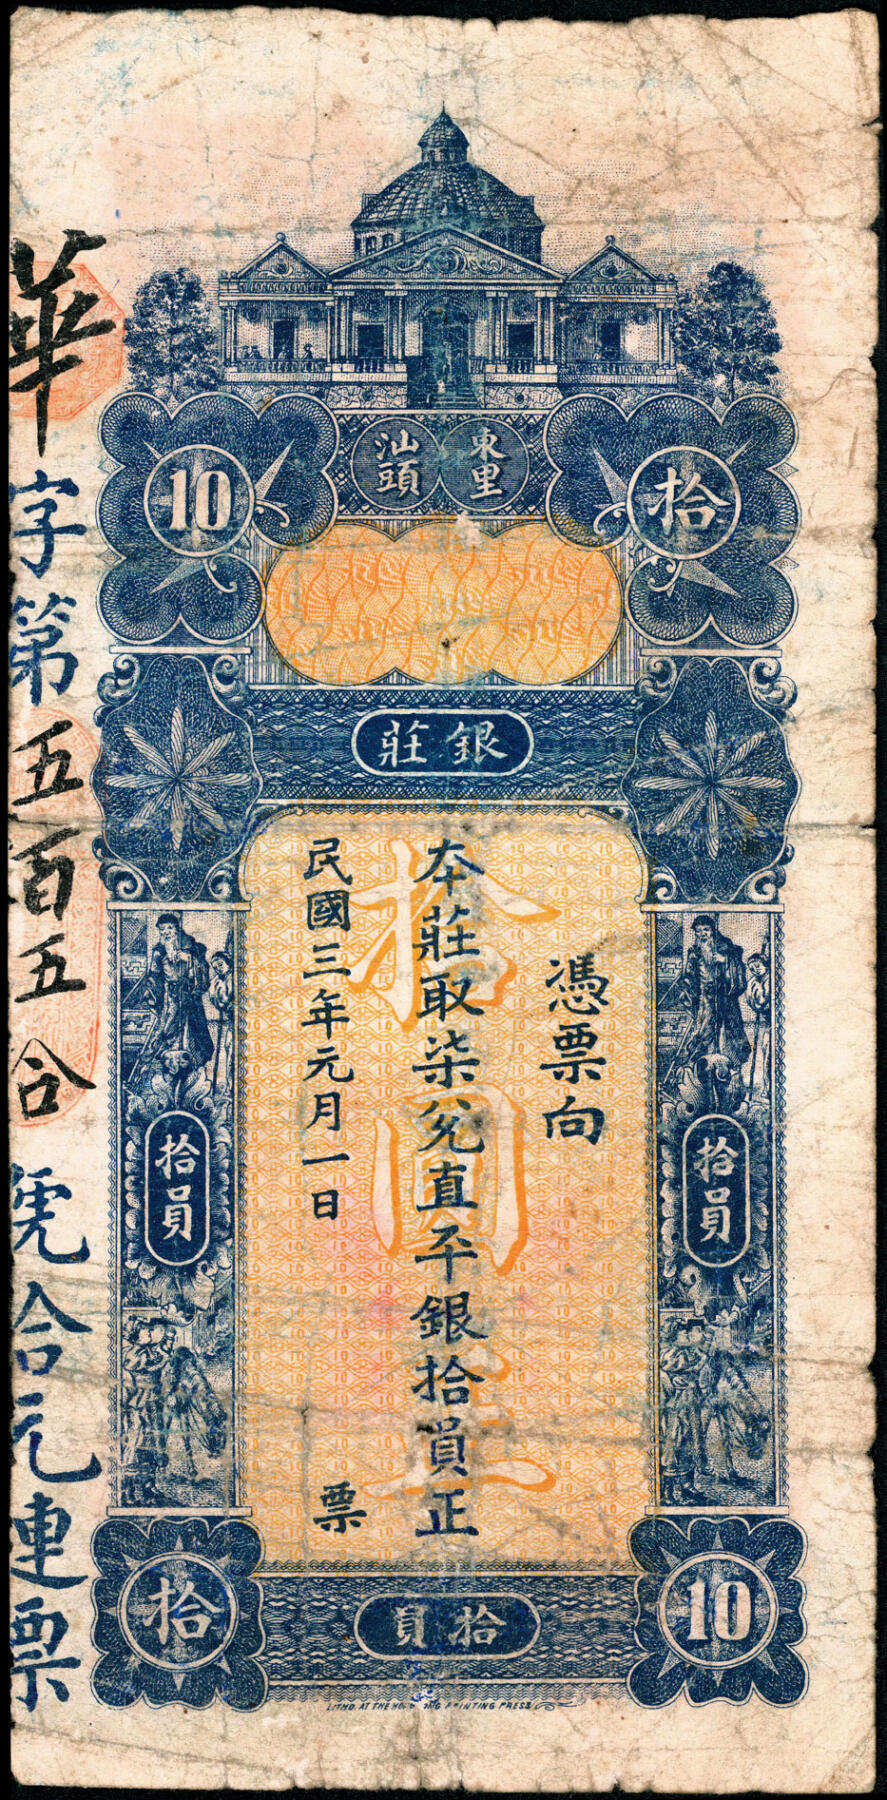 東里
汕頭
拾
10
銀莊
拾圓
憑票向
本莊取柒兌直平銀拾員正
民國三年元月一日
票
拾員
拾員
華字第五百五拾號拾元連票
10
拾員
拾
LITHO. AT THE PRINTING PRESS